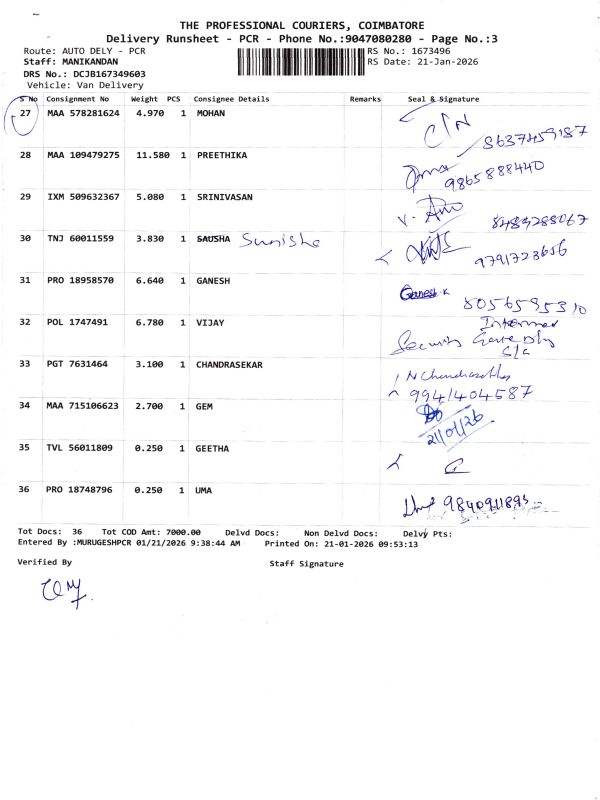 THE PROFESSIONAL COURIERS, COIMBATORE
Delivery Runsheet - PCR - Phone No.:9047080280 - Page No.:3
Route: AUTO DELY - PCR RS No.: 1673496
Staff: MANIKANDAN RS Date: 21-Jan-2026
DRS No.: DCJB167349603
Vehicle: Van Delivery
S No Consignment No Weight PCS Consignee Details Remarks Seal & Signature
27 MAA 578281624 4.970 1 MOHAN C/N 8637459187
28 MAA 109479275 11.580 1 PREETHIKA 9865888440
29 IXM 509632367 5.080 1 SRINIVASAN
30 TNJ 60011559 3.830 1 SAUSHA 9791723656
31 PRO 18958570 6.640 1 GANESH Ganesh K
32 POL 1747491 6.780 1 VIJAY Security
33 PGT 7631464 3.100 1 CHANDRASEKAR 9941404587
34 MAA 715106623 2.700 1 GEM 21/01/26
35 TVL 56011809 0.250 1 GEETHA G
36 PRO 18748796 0.250 1 UMA
Tot Docs: 36 Tot COD Amt: 7000.00 Delvd Docs: Non Delvd Docs: Delvy Pts:
Entered By :MURUGESHPCR 01/21/2026 9:38:44 AM Printed On: 21-01-2026 09:53:13
Verified By Staff Signature